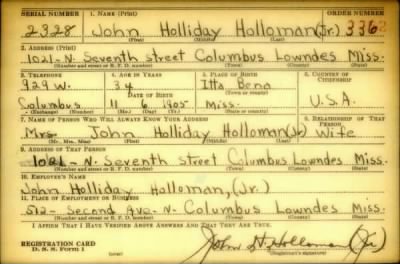 SERIAL NUMBER 1. NAME (Print) ORDER NUMBER
2328 John Holliday Holloman (Jr.) 3362
(First) (Middle) (Last)
2. ADDRESS (Print)
1021-N- Seventh street Columbus Lowndes Miss.
(Number and street or R. F. D. number) (Town) (County) (State)
3. TELEPHONE 4. AGE IN YEARS 5. PLACE OF BIRTH 6. COUNTRY OF CITIZENSHIP
929 W. 34 Itta Bena
(Town or county)
DATE OF BIRTH
Columbus 11 6 1905 Miss. U.S.A.
(Exchange) (Number) (Mo.) (Day) (Yr.) (State or country)
7. NAME OF PERSON WHO WILL ALWAYS KNOW YOUR ADDRESS 8. RELATIONSHIP OF THAT PERSON
Mrs. John Holliday Holloman (Jr) Wife
(Mr., Mrs., Miss) (First) (Middle) (Last)
9. ADDRESS OF THAT PERSON
1021 - N- Seventh street Columbus Lowndes Miss.
(Number and street or R. F. D. number) (Town) (County) (State)
10. EMPLOYER'S NAME
John Holliday Holloman, (Jr.)
11. PLACE OF EMPLOYMENT OR BUSINESS
512- Second Ave. N- Columbus Lowndes Miss.
(Number and street or R. F. D. number) (Town) (County) (State)
I AFFIRM THAT I HAVE VERIFIED ABOVE ANSWERS AND THAT THEY ARE TRUE.
REGISTRATION CARD
D. S. S. Form 1
John H. Holloman (Jr)
(Registrant's signature)